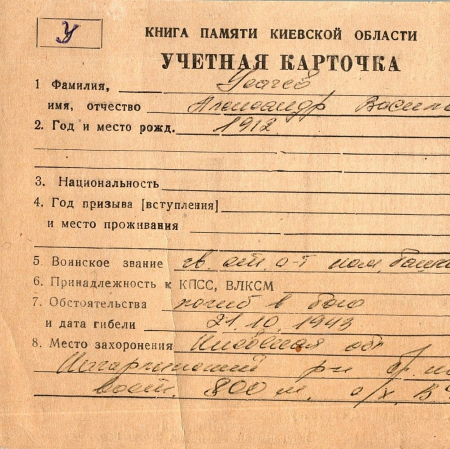 У
КНИГА ПАМЯТИ КИЕВСКОЙ ОБЛАСТИ
УЧЕТНАЯ КАРТОЧКА
1 Фамилия, Усачев
имя, отчество Александр Васил
2. Год и место рожд. 1912
3. Национальность
4. Год призыва [вступления]
и место проживания
5 Воинское звание гв. ком.
6. Принадлежность к КПСС, ВЛКСМ
7. Обстоятельства погиб в бою
и дата гибели 21.10.1943
8. Место захоронения Киевская обл
р-н
вост. 800 м. с/х.